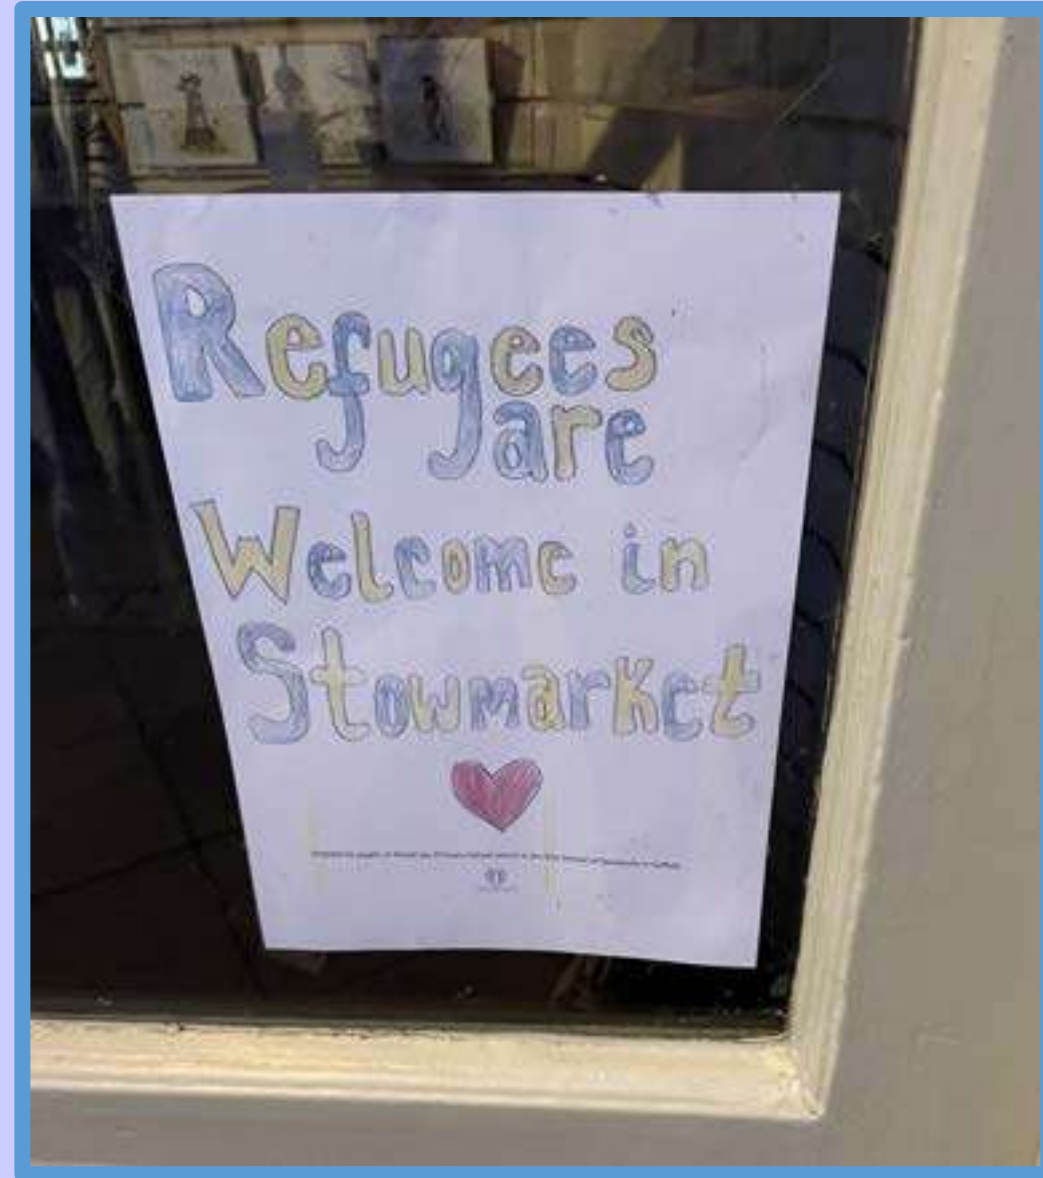 Refugees
are
Welcome in
Stowmarket